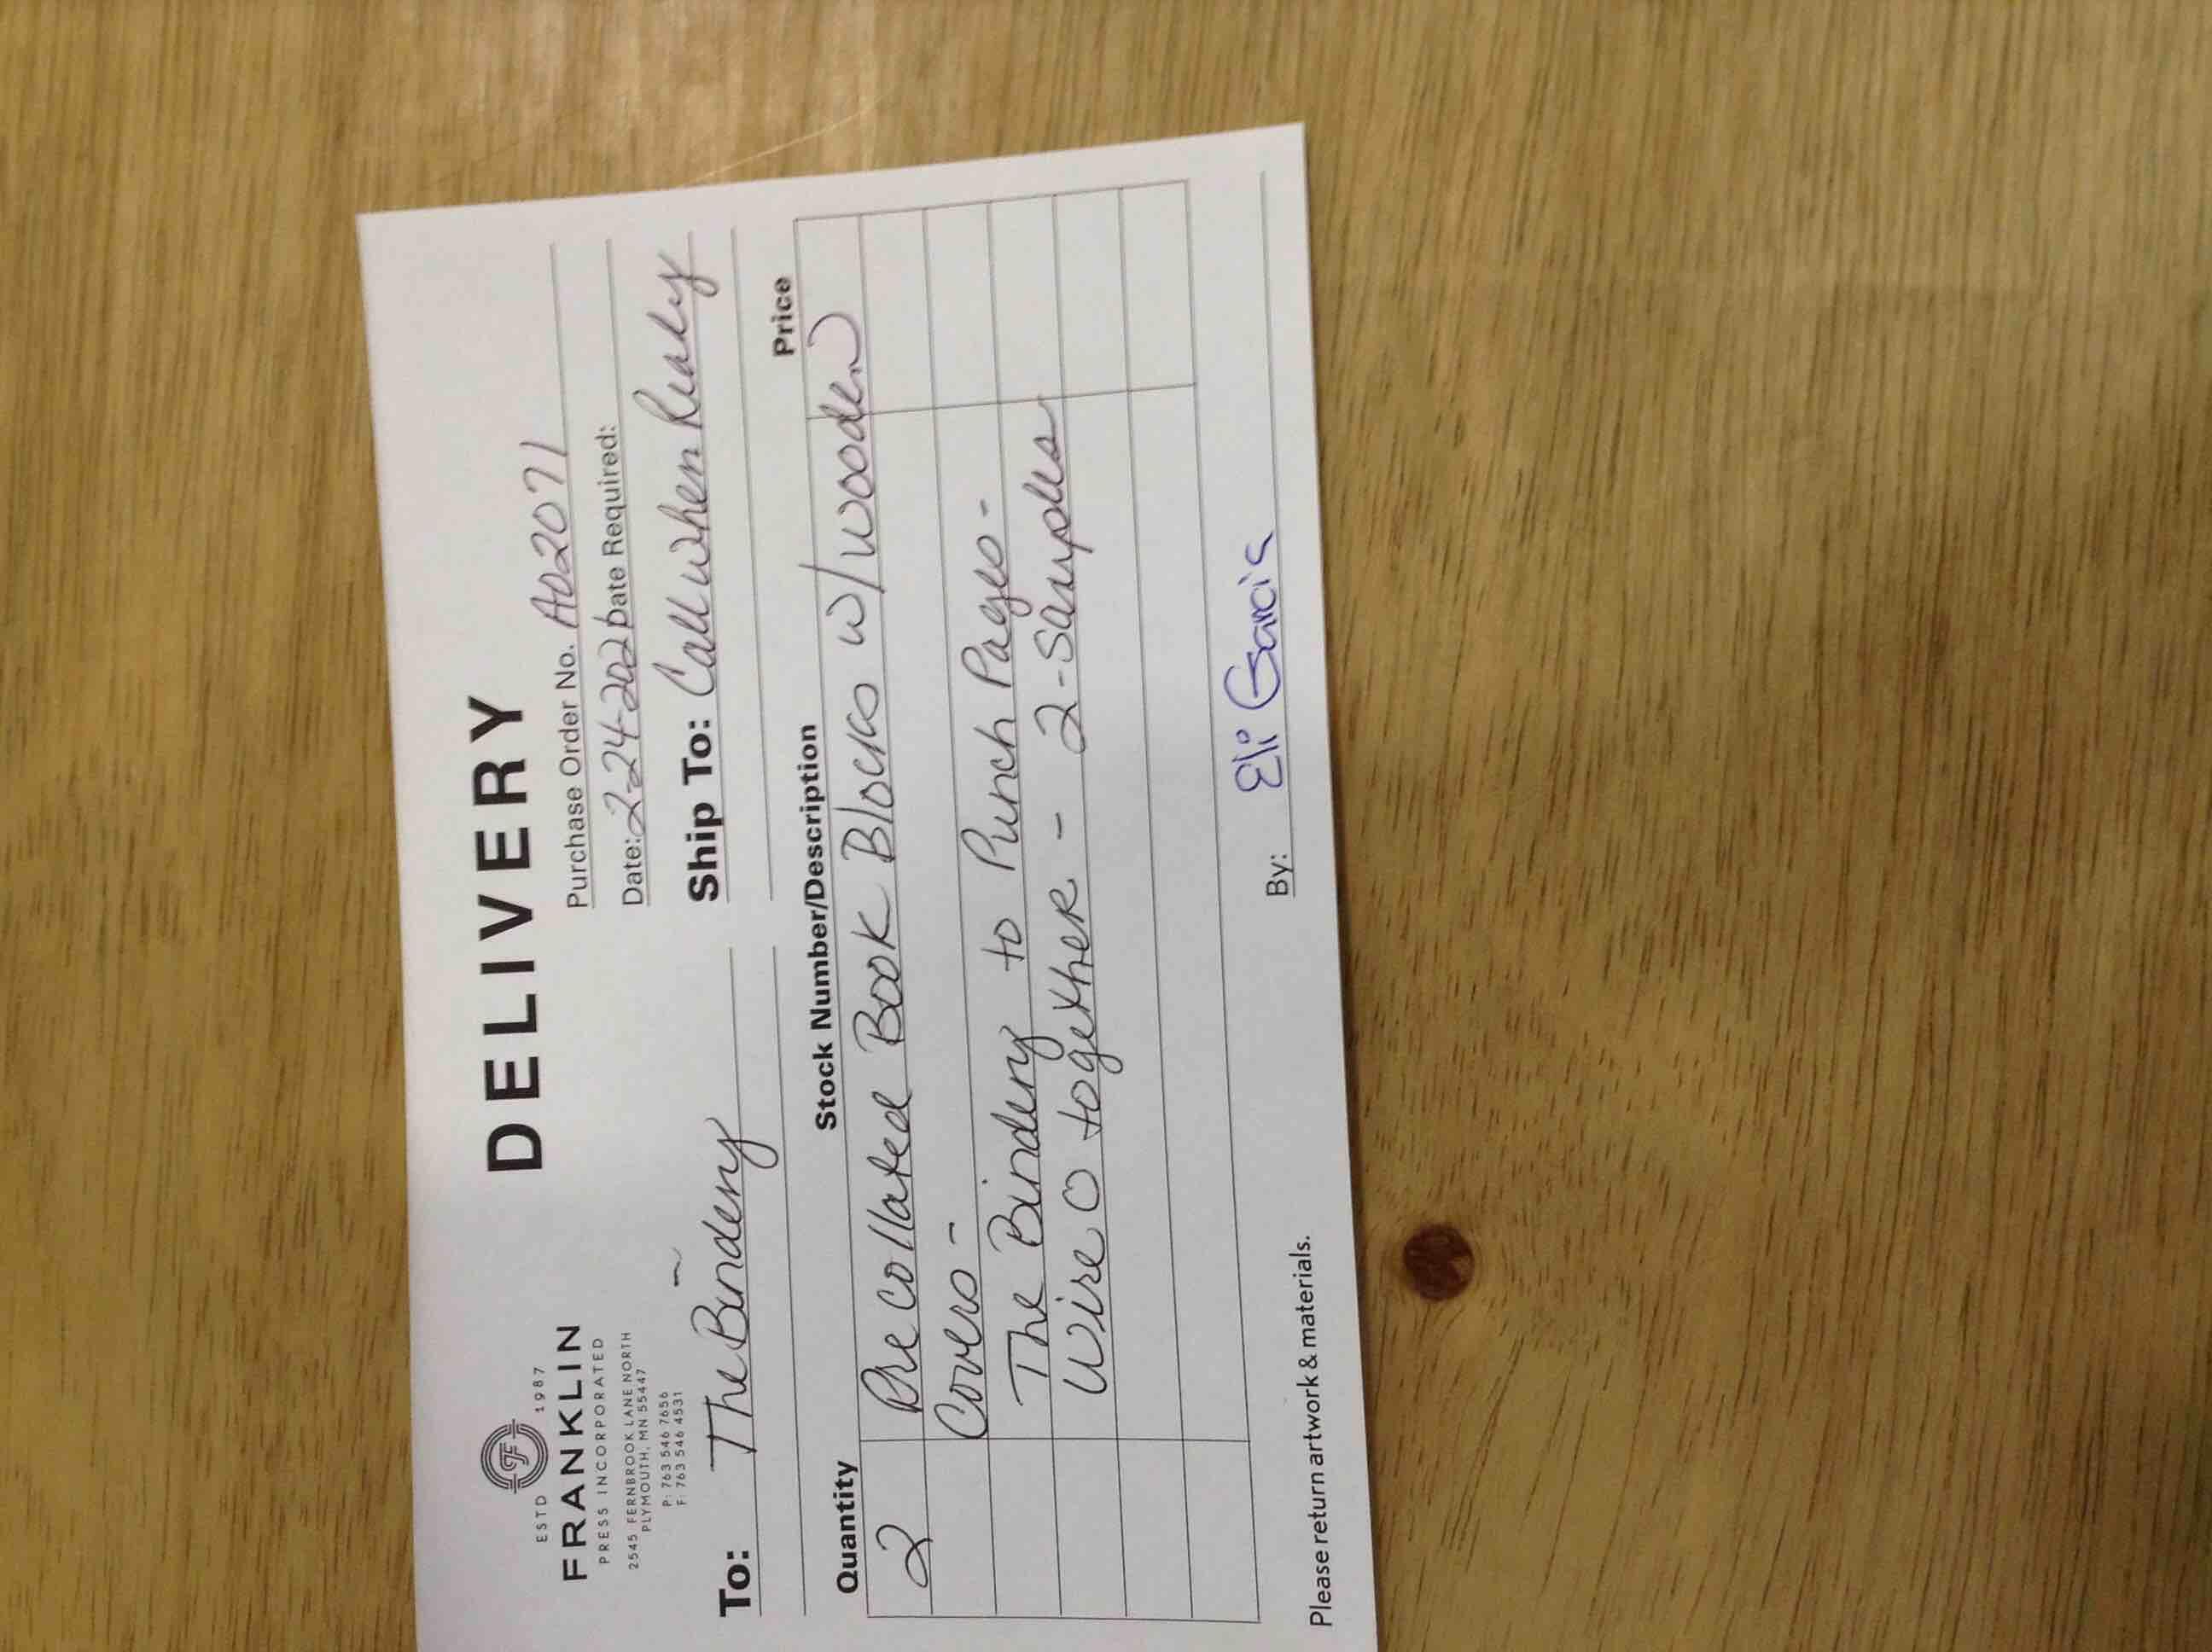 ESTD F 1987
FRANKLIN
PRESS INCORPORATED
2545 FERNBROOK LANE NORTH
PLYMOUTH, MN 55447
P: 763 546 7656
F: 763 546 4531
DELIVERY
Purchase Order No. A02071
Date: 2-24-202 Date Required:
To: The Bindery
Ship To: Call when Ready
Quantity Stock Number/Description Price
2 Pre collated Book Blocks w/ wooden
Covers -
The Bindery to Punch Pages -
Wire O together - 2 - Samples
By: Eli Garcia
Please return artwork & materials.